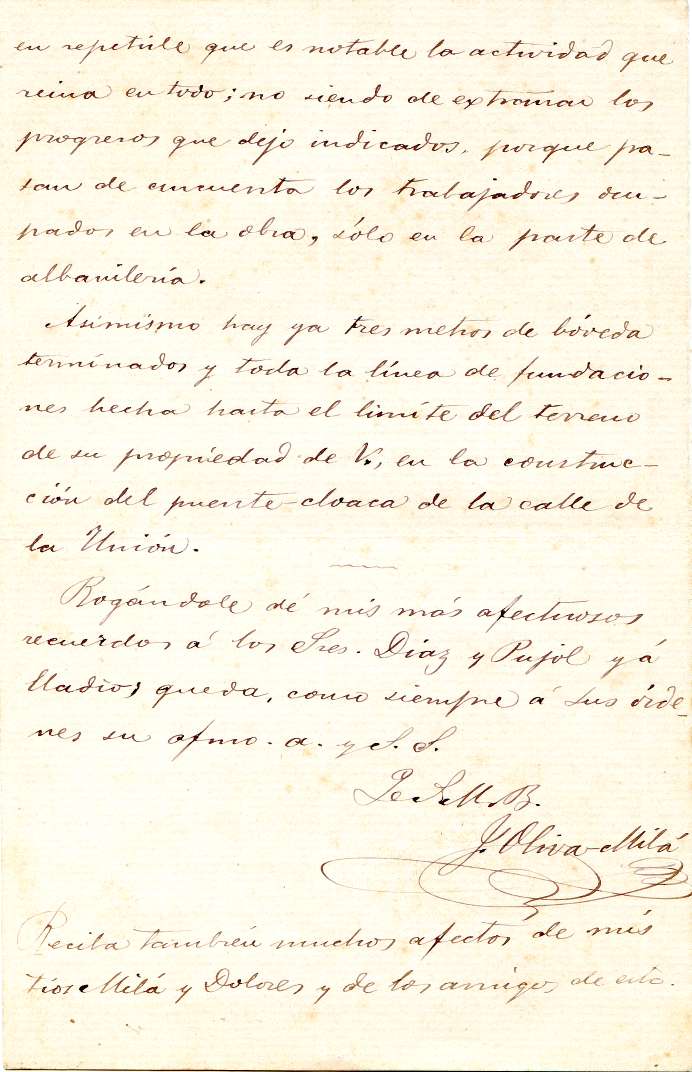 en repetirle que es notable la actividad que
reina en todo; no siendo de extrañar los
progresos que dejo indicados, porque pa-
san de cincuenta los trabajadores ocu-
pados en la obra, sólo en la parte de
albanilería.
Asimismo hay ya tres metros de bóveda
terminados y toda la línea de fundacio-
nes hecha hasta el limíte del terreno
de su propiedad de V., en la construc-
ción del puente-cloaca de la calle de
la Unión.
Rogándole dé mis más afectuosos
recuerdos á los Sres. Diaz y Pujol y á
Eladio; queda, como siempre á sus órde-
nes su afmo. a. y S. S.
Q. S. M. B.
J. Oliva-Milá
Reciba también muchos afectos de mis
tíos Milá y Dolores y de los amigos de esta.